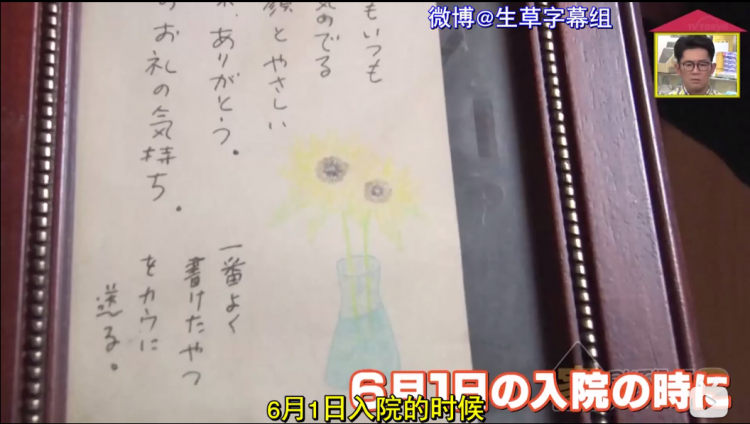 微博@生草字幕组
もいつも
気のでる
顔とやさしい
ありがとう。
お礼の気持ち。
一番よく
書けたやつ
をカウに
送る。
6月1日の入院の時に
6月1日入院的时候